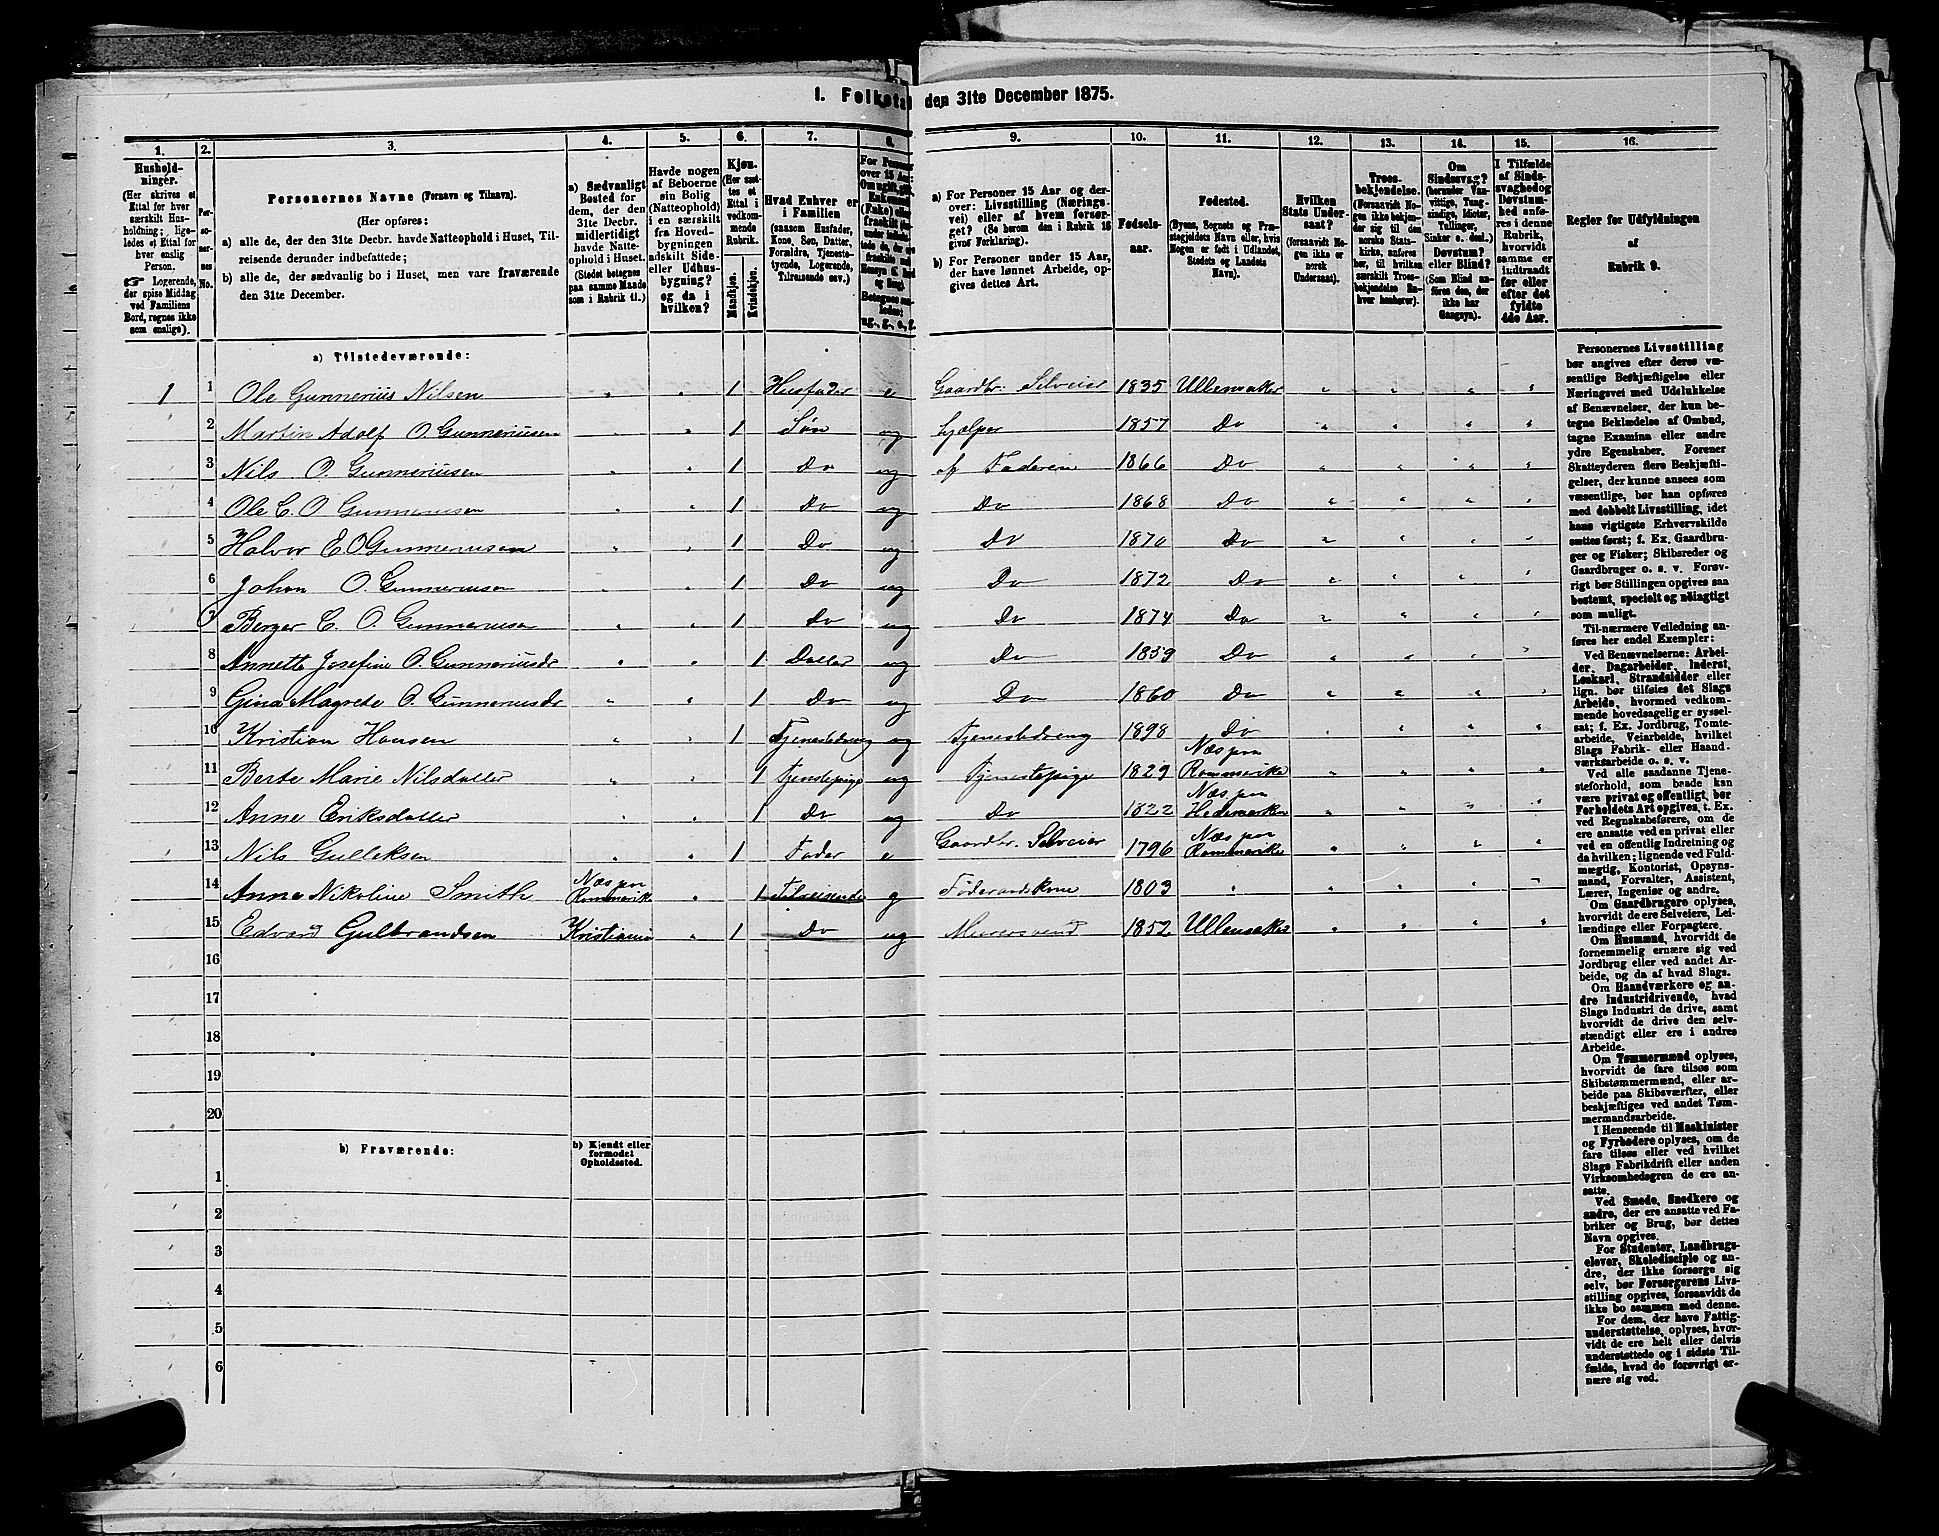 1. Folketal den 31te December 1875.
1. 2. 3. 4. 5. 6. 7. 8. 9. 10. 11. 12. 13. 14. 15. 16.
Hushold-
ninger.
(Her skrives et
Ettal for hver
særskilt Hus-
holdning; lige-
ledes et Ettal for
hver enslig
Person.
☞ Logerende,
der spise Middag
ved Familiens
Bord, regnes ikke
som enslige).
Per-
soner-
nes
No.
Personernes Navne (Fornavn og Tilnavn).
(Her opføres:
a) alle de, der den 31te Decbr. havde Natteophold i Huset, Til-
reisende derunder indbefattede;
b) alle de, der sædvanlig bo i Huset, men vare fraværende
den 31te December.
a) Sædvanligt
Bosted for
dem, der den
31te Decbr.
midlertidigt
havde Natte-
ophold i Huset.
(Stedet betegnes
paa samme Maade
som i Rubrik 11.)
Havde nogen
af Beboerne
sin Bolig
(Natteophold)
i en særskilt
fra Hoved-
bygningen
adskilt Side-
eller Udhus-
bygning?
og da i
hvilken?
Kjøn.
(Her sæt-
tes et
Ettal i
vedkom-
mende
Rubrik.
Mandkjøn.
Kvindekjøn.
Hvad Enhver er
i Familien
(saasom Husfader,
Kone, Søn, Datter,
Forældre, Tjeneste-
tyende, Logerende,
Tilreisende osv.)
For Personer
over 15 Aar:
a) For Personer 15 Aar og der-
over: Livsstilling (Nærings-
vei) eller af hvem forsør-
get? (Se herom den i Rubrik 16
givne Forklaring).
b) For Personer under 15 Aar,
der have lønnet Arbeide, op-
gives dettes Art.
Fødsels-
aar.
Fødested.
(Byens, Sognets og Præ-
stegjeldets Navn eller, hvis
Nogen er født i Udlandet,
Stedets og Landets
Navn).
Hvilken
Stats Under-
saat?
(forsaavidt No-
gen ikke er
norsk
Undersaat).
Troes-
bekjendelse.
(Forsaavidt No-
gen ikke bekjen-
der sig til den
norske Stats-
kirke, anføres
her, til hvilken
særskilt Troes-
bekjendelse En-
hver henhører).
Om
Sindssvag?
(herunder Van-
vittige, Tung-
sindige, Idioter,
Tullinger,
Sinker o. desl.)
Døvstum?
eller Blind?
(Som Blind an-
føres den, der
ikke har
Gangsyn).
I Tilfælde
af Sinds-
svaghed og
Døvstum-
hed anfø-
res i denne
Rubrik,
hvorvidt
samme er
indtraadt
før eller
efter det
fyldte
4de Aar.
Regler for Udfyldningen
af
Rubrik 9.
a) Tilstedeværende:
1 1 Ole Gunnerius Nilsen „ „ 1 Husfader e Gaardbr. Selveier 1835 Ullensaker „ „ „ „
2 Martin Adolf O. Gunneriusen „ „ 1 Søn ug hjælper 1857 Do „ „ „ „
3 Nils O. Gunneriusen „ „ 1 Do ug af Faderen 1866 Do „ „ „ „
4 Ole C. O Gunneriusen „ „ 1 Do ug Do 1868 Do „ „ „ „
5 Halvor E. O Gunneriusen „ „ 1 Do ug Do 1870 Do „ „ „ „
6 Johan O. Gunneriusen „ „ 1 Do ug Do 1872 Do „ „ „ „
7 Berger C. O. Gunneriusen „ „ 1 Do ug Do 1874 Do „ „ „ „
8 Annette Josefine O. Gunneriusdr „ „ 1 Datter ug Do 1859 Do „ „ „ „
9 Gina Magrete O. Gunneriusdr „ „ 1 Do ug Do 1860 Do „ „ „ „
10 Kristian Hansen „ „ 1 Tjenestedreng ug Tjenestedreng 1898 Do „ „ „ „
11 Berte Marie Nilsdatter „ „ 1 Tjenstepige ug Tjenestepige 1829 Næs paa Rommerike „ „ „ „
12 Anne Eriksdatter „ „ 1 Do ug Do 1822 Næs paa Hedemarken „ „ „ „
13 Nils Gulleksen „ „ 1 Fader e Gaardbr. Selveier 1796 Næs paa Rommerike „ „ „ „
14 Anne Nikoline Smith Næs paa Rommerike „ 1 Tilreisende g Føderaadskone 1803 „ „ „ „ „
15 Edvard Gulbrandsen Kristiania „ 1 Do ug Murersvend 1852 Ullensaker „ „ „ „
16
17
18
19
20
b) Fraværende:
b) Kjendt eller
formodet
Opholdssted.
1
2
3
4
5
6
Personernes Livsstilling
bør angives efter deres væ-
sentlige Beskjæftigelse eller
Næringsvei med Udelukkelse
af Benævnelser, der kun be-
tegne Beklædelse af Ombud,
tagne Examina eller andre
ydre Egenskaber. Forener
Skatteyderen flere Beskjæfti-
gelser, der kunne ansees som
væsentlige, bør han opføres
med dobbelt Livsstilling, idet
hans vigtigste Erhvervskilde
sættes først; f. Ex. Gaardbru-
ger og Fisker; Skibsreder og
Gaardbruger o. s. v. Forøv-
rigt bør Stillingen opgives saa
bestemt, specielt og nøiagtigt
som muligt.
Til nærmere Veiledning an-
føres her endel Exempler:
Ved Benævnelserne: Arbei-
der, Dagarbeider, Inderst,
Løskarl, Strandsidder eller
lign. bør tilføies det Slags
Arbeide, hvormed vedkom-
mende hovedsagelig er syssel-
sat; f. Ex. Jordbrug, Tomte-
arbeide, Veiarbeide, hvilket
Slags Fabrik- eller Haand-
værksarbeide o. s. v.
Ved alle saadanne Tjene-
steforhold, som baade kan
være privat og offentligt, bør
Forholdets Art opgives, t. Ex.
ved Regnskabsførere, om de
ere ansatte ved en privat eller
ved en offentlig Indretning og
da hvilken; lignende ved Fuld-
mægtig, Kontorist, Opsyns-
mand, Forvalter, Assistent,
Lærer, Ingeniør og andre.
Om Gaardbrugere oplyses,
hvorvidt de ere Selveiere, Lei-
lændinge eller Forpagtere.
Om Husmænd, hvorvidt de
fornemmelig ernære sig ved
Jordbrug eller ved andet Ar-
beide, og da af hvad Slags.
Om Haandværkere og an-
dre Industridrivende, hvad
Slags Industri de drive, samt
hvorvidt de drive den selv-
stændigt eller ere i andres
Arbeide.
Om Tømmermænd oplyses,
hvorvidt de fare tilsøs som
Skibstømmermænd, eller ar-
beide paa Skibsværfter, eller
beskjæftiges ved andet Tøm-
mermandsarbeide.
I Henseende til Maskinister
og Fyrbødere oplyses, om de
fare tilsøs eller ved hvilket
Slags Fabrikdrift eller anden
Virksomhedsgren de ere an-
satte.
Ved Smede, Snedkere og
andre, der ere ansatte ved Fa-
briker og Brug, bør dettes
Navn opgives.
For Studenter, Landbrugs-
elever, Skoledisciple og an-
dre, der ikke forsørge sig
selv, bør Forsørgerens Livs-
stilling opgives, forsaavidt de
ikke bo sammen med denne.
For dem, der have Fattig-
understøttelse, oplyses, hvor-
vidt de ere helt eller delvis
understøttede og i sidste Til-
fælde, hvad de forøvrigt er-
nære sig ved.